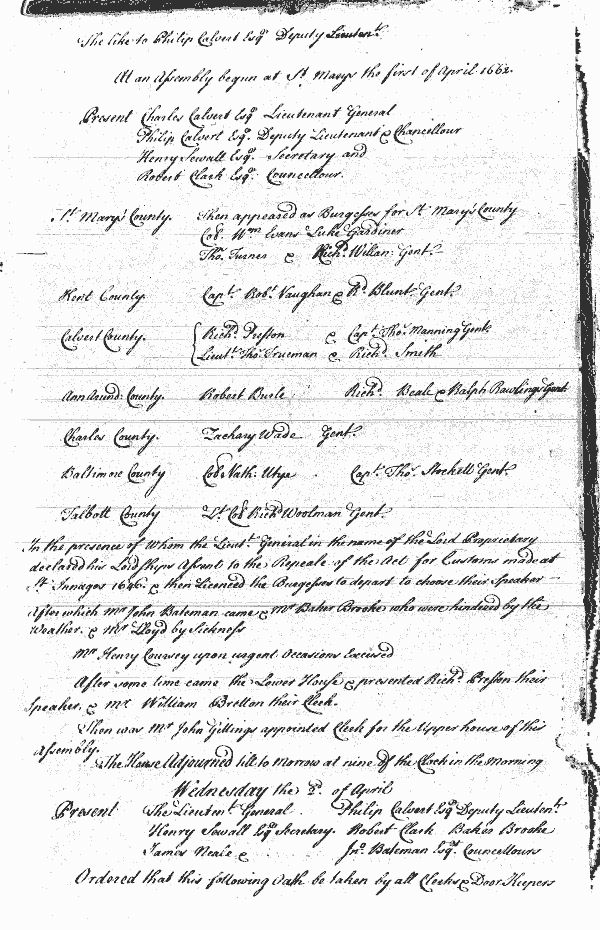 The like to Philip Calvert Esqr Deputy Lieutent
At an Assembly begun at St Marys the first of April 1662.
Present Charles Calvert Esqr Lieutenant General
Philip Calvert Esqr. Deputy Lieutenant & Chancellour
Henry Sewall Esqr. Secretary and
Robert Clark Esqr. Councellour.
St Mary's County. Then appeared as Burgesses for St Mary's County
Col. Wm Evans Luke Gardiner
Tho. Turner & Richd. Willan: Gent.
Kent County. Capt. Robt. Vaughan & Rd. Blunt. Gent.
Calvert County. Richd. Preston & Capt. Tho. Manning Gent.
Lieut. Tho. Trueman & Richd. Smith
AnnArund: County. Robert Burle Richd. Beale & Ralph Rawlings Gent
Charles County. Zachary Wade Gent.
Baltimore County Col Nath. Utye Capt. Tho. Stockett Gent.
Talbott County Lt. Col Richd Woolman Gent.
In the presence of whom the Lieut. General in the name of the Lord Proprietary
declared his Lordships Assent to the Repeale of the Act for Customs made at
St. Innagos 1646. & then Licenced the Burgesses to depart to choose their Speaker
After which Mr John Bateman came & Mr Baker Brooke who were hindered by the
Weather, & Mr Lloyd by Sickness
Mr Henry Coursey upon urgent Occasions Excused
After some time came the Lower House & presented Richd. Preston their
Speaker, & Mr William Bretton their Clerk.
Then was Mr John Gittings appointed Clerk for the Upper house of this
Assembly.
The House Adjourned till to Morrow at nine of the Clock in the Morning
Wednesday the 2d. of April
Present The Lieutnt General Philip Calvert Esqr Deputy Lieutent
Henry Sewall Esqr Secretary. Robert Clark Baker Brooke
James Neale & Jno. Bateman Esqrs. Councellours
Ordered that this following Oath be taken by all Clerks & Door Keepers